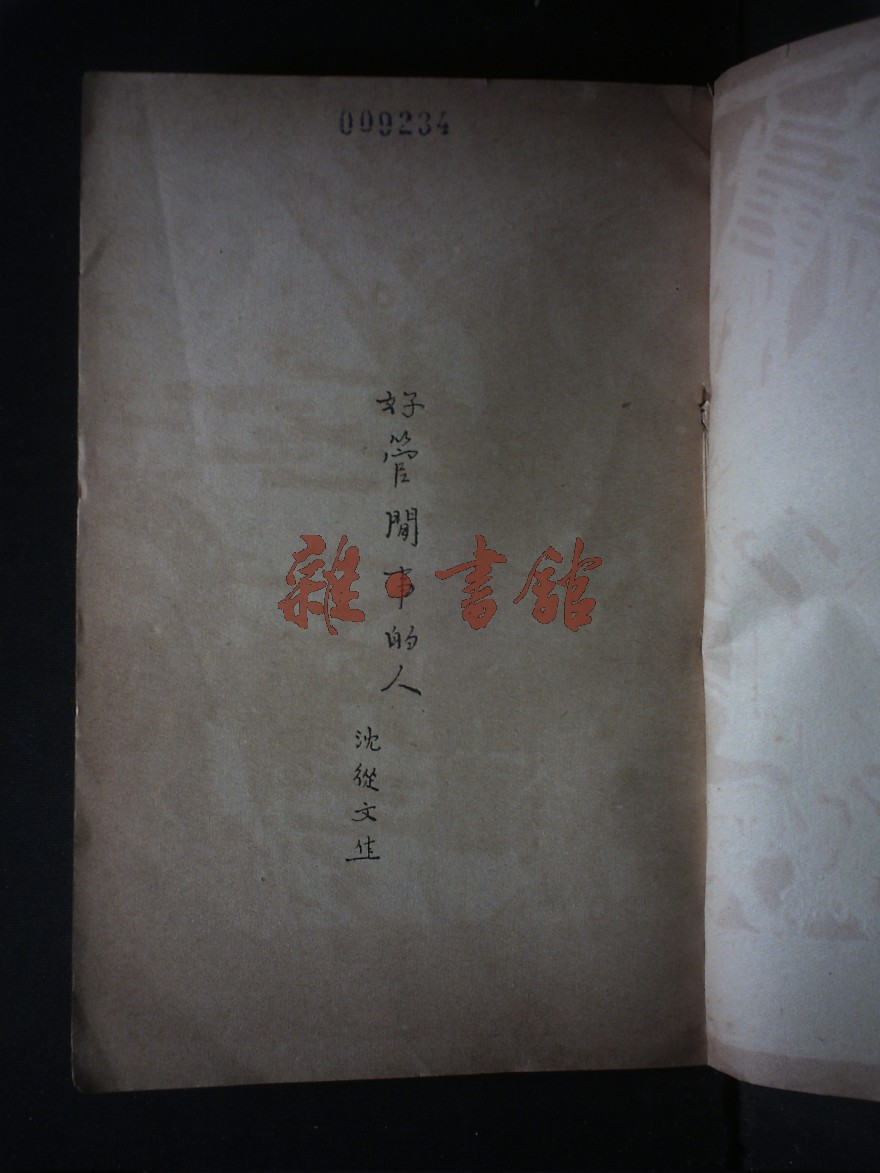 009234
好管閒事的人
沈從文作
雜·書館